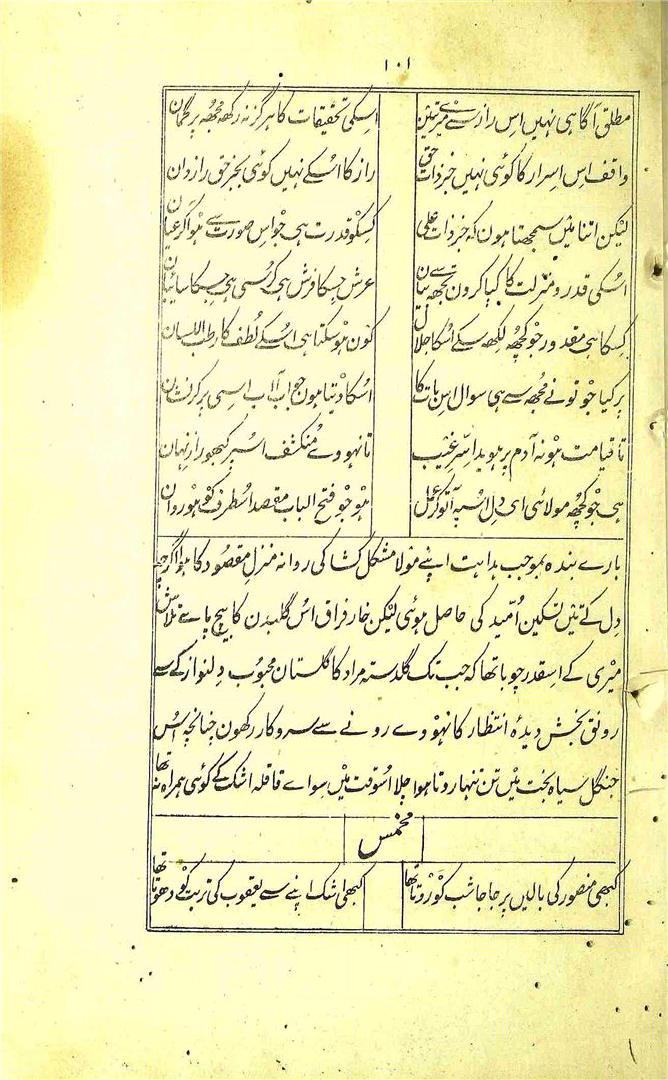 ۱۰۱
مطلق آگاہی نہیں اس راز سے میرے تئین اسکی تحقیقات کا ہرگز نہ رکھ مجھہ پر گمان
واقف اس اسرار کا کوئی نہیں جز ذات حق راز کا اُسکے نہیں کوئی بجز حق رازدان
لیکن اتنا میں سمجھتا ہون کہ جز ذات علی کسکو قدرت ہی جو اس صورت سے ہو اگر عیان
اُسکی قدر و منزلت کا کیا کرون تجھہ سے بیان عرش جسکا فرش ہی کرسی ہی جسکا سائبان
کسکا ہی مقدور جو کچھہ لکھہ سکے اُسکا جلال کون ہو سکتا ہی اُسکے لُطف کا رطب اللسان
پر کیا جو تو نے مجھہ سے ہی سوال اس بات کا اُسکا دیتا ہون جواب اب اسی پر کر
تا قیامت ہو نہ آدم پر ہویدا سِرّ غیب تا نہووے مُنکشف اُسپر کبھو راز نہان
ہی جو کچھہ مولا سی ای دل اسپہ تو کر عمل ہو جو فتح الباب مقصد اُسطرف کو ہو روان
بارے بندہ بموجب ہدایت اپنے مولا مشکل کشا کی روانہ منزل مقصود کا ہوا اگرچہ
دل کے تئیں تسکین اُمّید کی حاصل ہوئی لیکن خار فراق اُس گلبدن کا بیچ پاے تلاش
میری کے اسقدر چوبا تھا کہ جب تک گلدستہ مراد کا گلستان محبوب دلنواز کے سے
رونق بخش دیدۂ انتظار کا نہووے رونے سے سروکار رکھون چنانچہ اُس
جنگل سیاہ بخت میں تن تنہا روتا ہوا چلا اُسوقت میں سواے قافلہ اشک کے کوئی ہمراہ نہ تھا
مخمس
کبھی منصور کی بالیں پر جا جا شب کو روتا تھا کبھی اشک اپنے سے یعقوب کی تربت کو دھوتا تھا